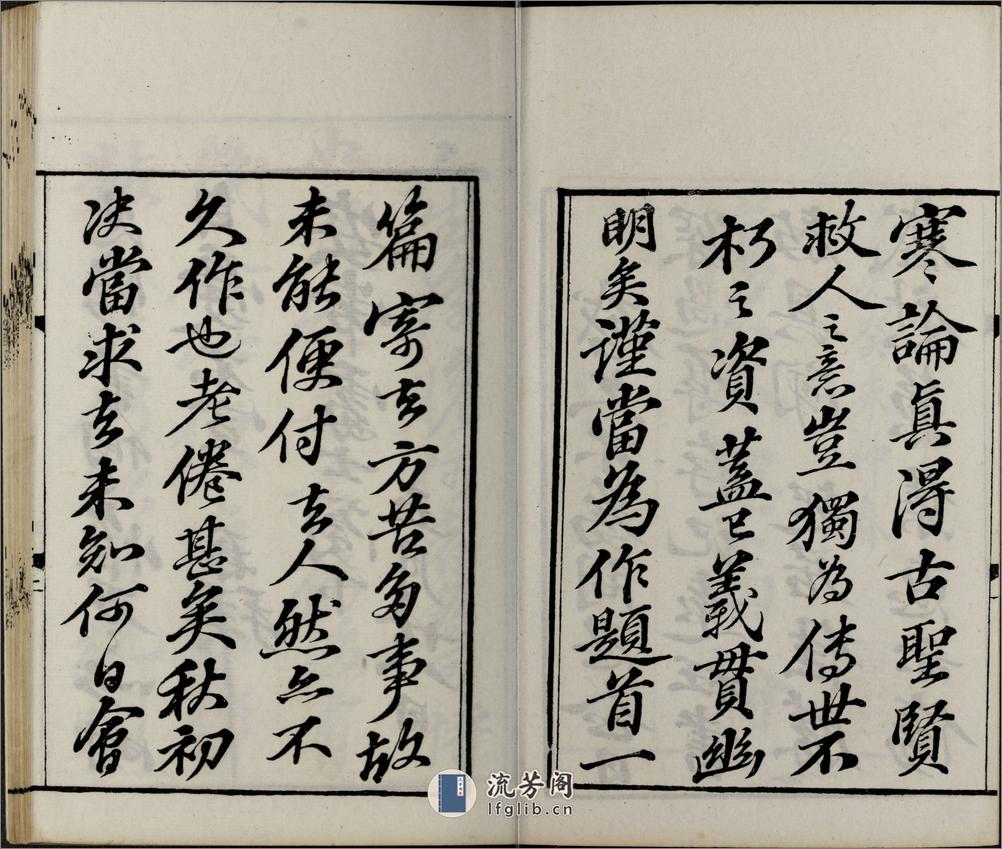 寒論真得古聖賢
救人之意豈獨為傳世不
朽之資蓋已義貫幽
明矣謹當為作題首一
篇寄去方苦多事故
未能便付去人然亦不
久作也老倦甚矣秋初
決當求去未知何日會
二
流芳阁
lfglib.cn